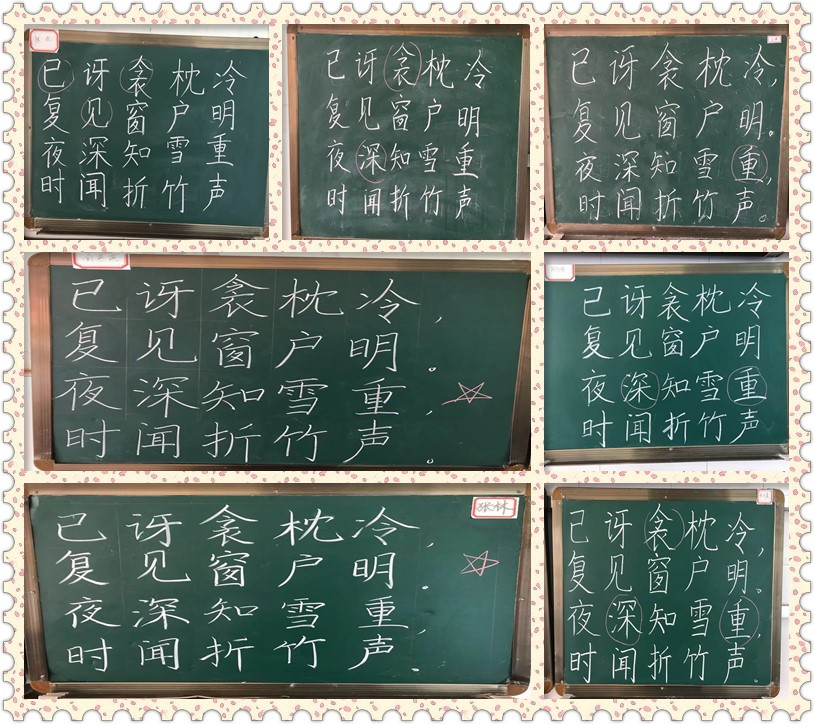 已讶衾枕冷
复见窗户明
夜深知雪重
时闻折竹声
已讶衾枕冷
复见窗户明
夜深知雪重
时闻折竹声
已讶衾枕冷，
复见窗户明。
夜深知雪重，
时闻折竹声。
已讶衾枕冷，
复见窗户明。
夜深知雪重，
时闻折竹声。
已讶衾枕冷
复见窗户明
夜深知雪重
时闻折竹声
张林
已讶衾枕冷，
复见窗户明。
夜深知雪重，
时闻折竹声。
已讶衾枕冷，
复见窗户明。
夜深知雪重，
时闻折竹声。